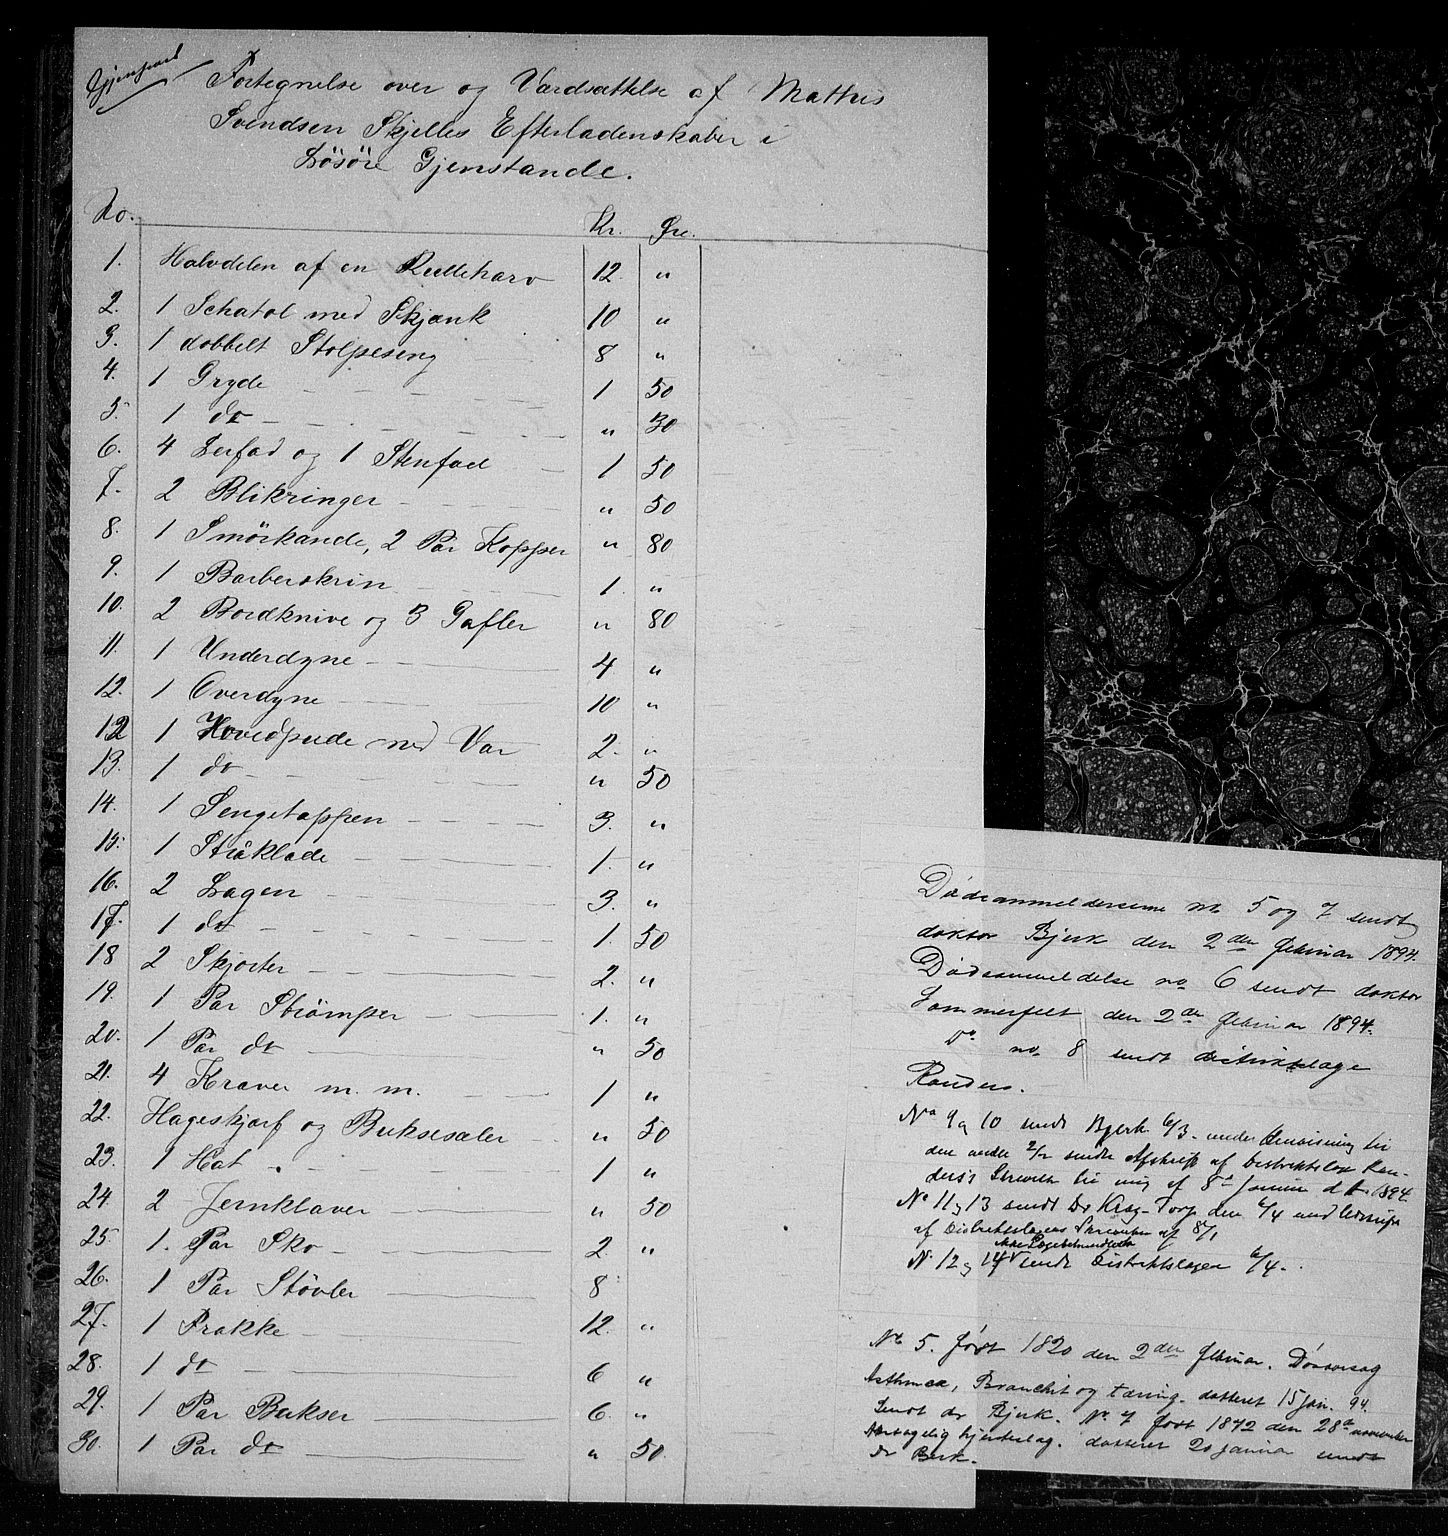 Gjenpart
Fortegnelse over og Værdsættelse af Mathis
Svendsen Skjelles Efterladenskaber i
Løsøre Gjenstande.
No. Kr. Øre.
1. Halvdelen af en Rulleharv 12. "
2. 1 Schatol med Skjænk 10 "
3. 1 dobbelt Stolpeseng 8 "
4. 1 Gryde 1 50
5. 1 do " 30
6. 4 Lerfad og 1 Stenfad 1 50
7. 2 Blikringer " 50
8. 1 Smörkande, 2 Par Kopper " 80
9. 1 Barberskrin 1. "
10. 2 Bordknive og 3 Gafler " 80
11. 1 Underdyne 4 "
12. 1 Overdyne 10 "
12 1 Hovedpude med Var 2. "
13. 1 do " 50
14. 1 Sengetæppen 3. "
15. 1 Stråklade 1. "
16. 2 Lagen 3. "
17. 1 do 1. 50
18 2 Skjorter 2. "
19. 1 Par Strömper 1. "
20. 1 Par do " 50
21. 4 Kraver m. m. 1 "
22. Hageskjørf og Buksesæler " 50
23. 1 Hat 1 "
24. 2 Jernklaver " 50
25. 1. Par Sko 2. "
26. 1 Par Støvler 8
27. 1 Frakke 12. "
28. 1 do 6 "
29. 1 Par Bukser 6. "
30. 1 Par do " 50.
Dødsanmelderserne no 5 og 7 sendt
doktor Bjerk den 2den februar 1894.
Dødsanmeldelse no 6 sendt doktor
Sommerfelt den 2de februar 1894.
Do no 8 sendt distriktslæge
Randers.
No 9 og 10 sendt Bjerk 6/3. under Henvisning til
den under 2/2 sendte Afskrift af Distriktslæge Ran-
ders's Skrivelse til mig af 8de Januar d. A. 1894.
No 11 og 13 sendt Dr Krag-Torp den 6/4 med Udskrift
af Distriktslægens Skrivelse af 8/1
ikke Lægebehandlede
No 12 og 14 sendt Distriktslægen 6/4.
No 5. født 1820 den 2den februar. Dødsorsag
Asthmea, Bronchit og tæring. datteret 15 jan. 94.
Sendt dr Bjerk. No 7 født 1872 den 28de november
hjerteslag. datteret 20 januar sendt
dr Berk.